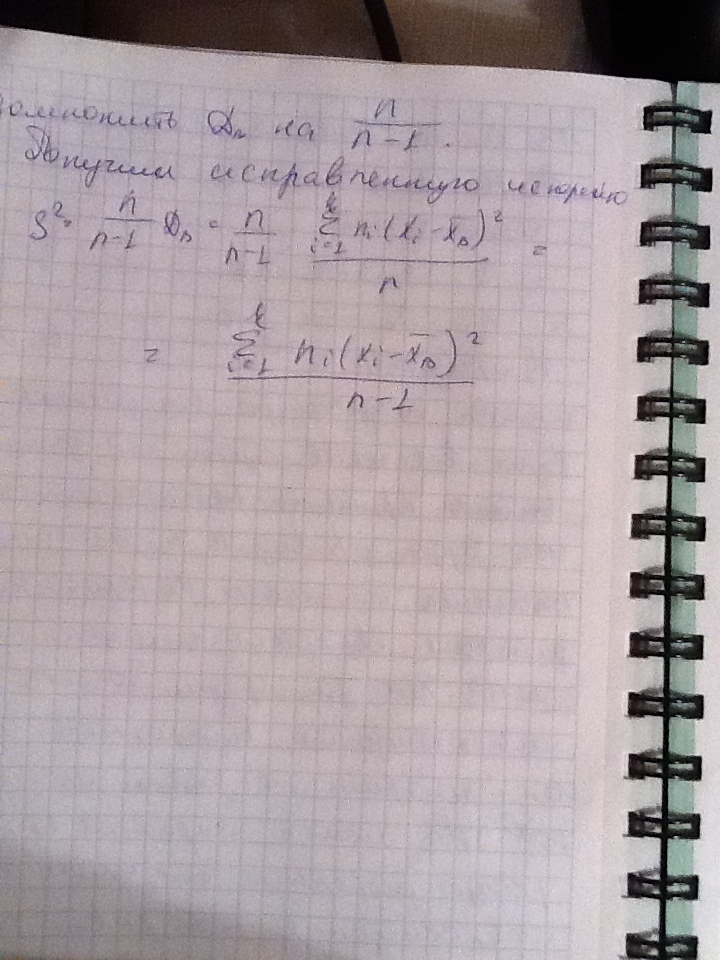 умножить Dв на n/(n-1).
получим исправленную
S² = n/(n-1) Dв = n/(n-1) · (∑_{i=1}^{k} nᵢ(xᵢ - x̄в)²)/n =
= (∑_{i=1}^{k} nᵢ(xᵢ - x̄в)²)/(n-1)